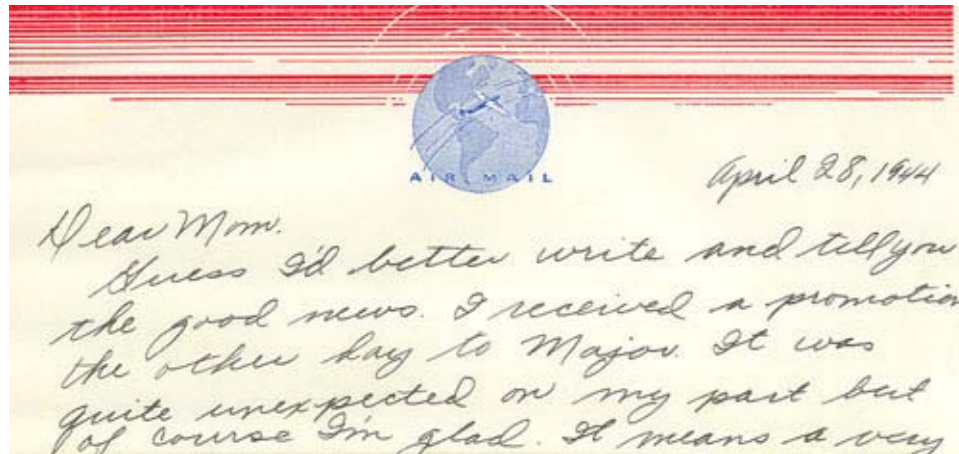 AIR MAIL
April 28, 1944
Dear Mom.
Guess I'd better write and tell you
the good news. I received a promotion
the other day to Major. It was
quite unexpected on my part but
of course I'm glad. It means a very